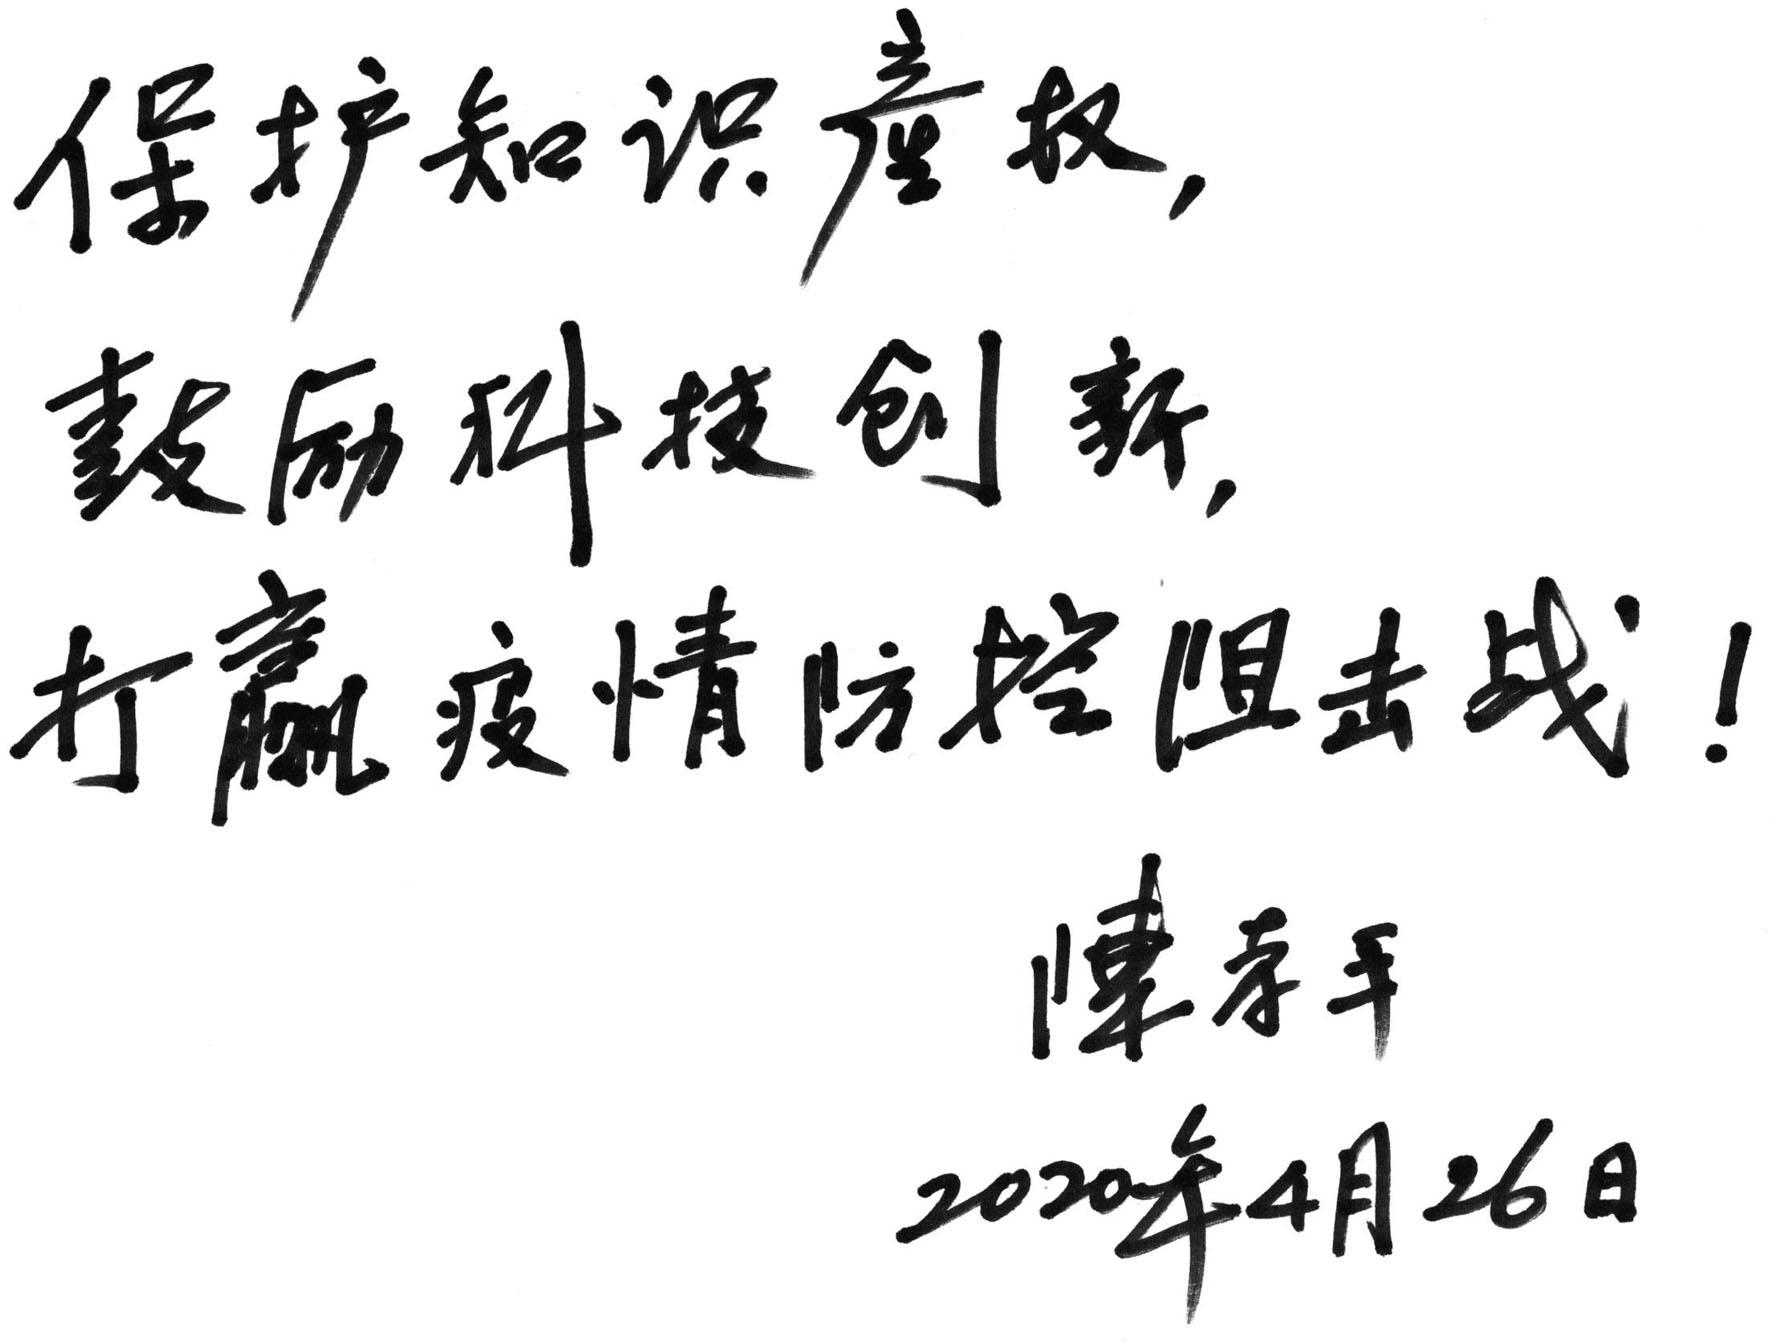 保护知识産权，
鼓励科技创新，
打赢疫情防控阻击战！
陳孝平
2020年4月26日